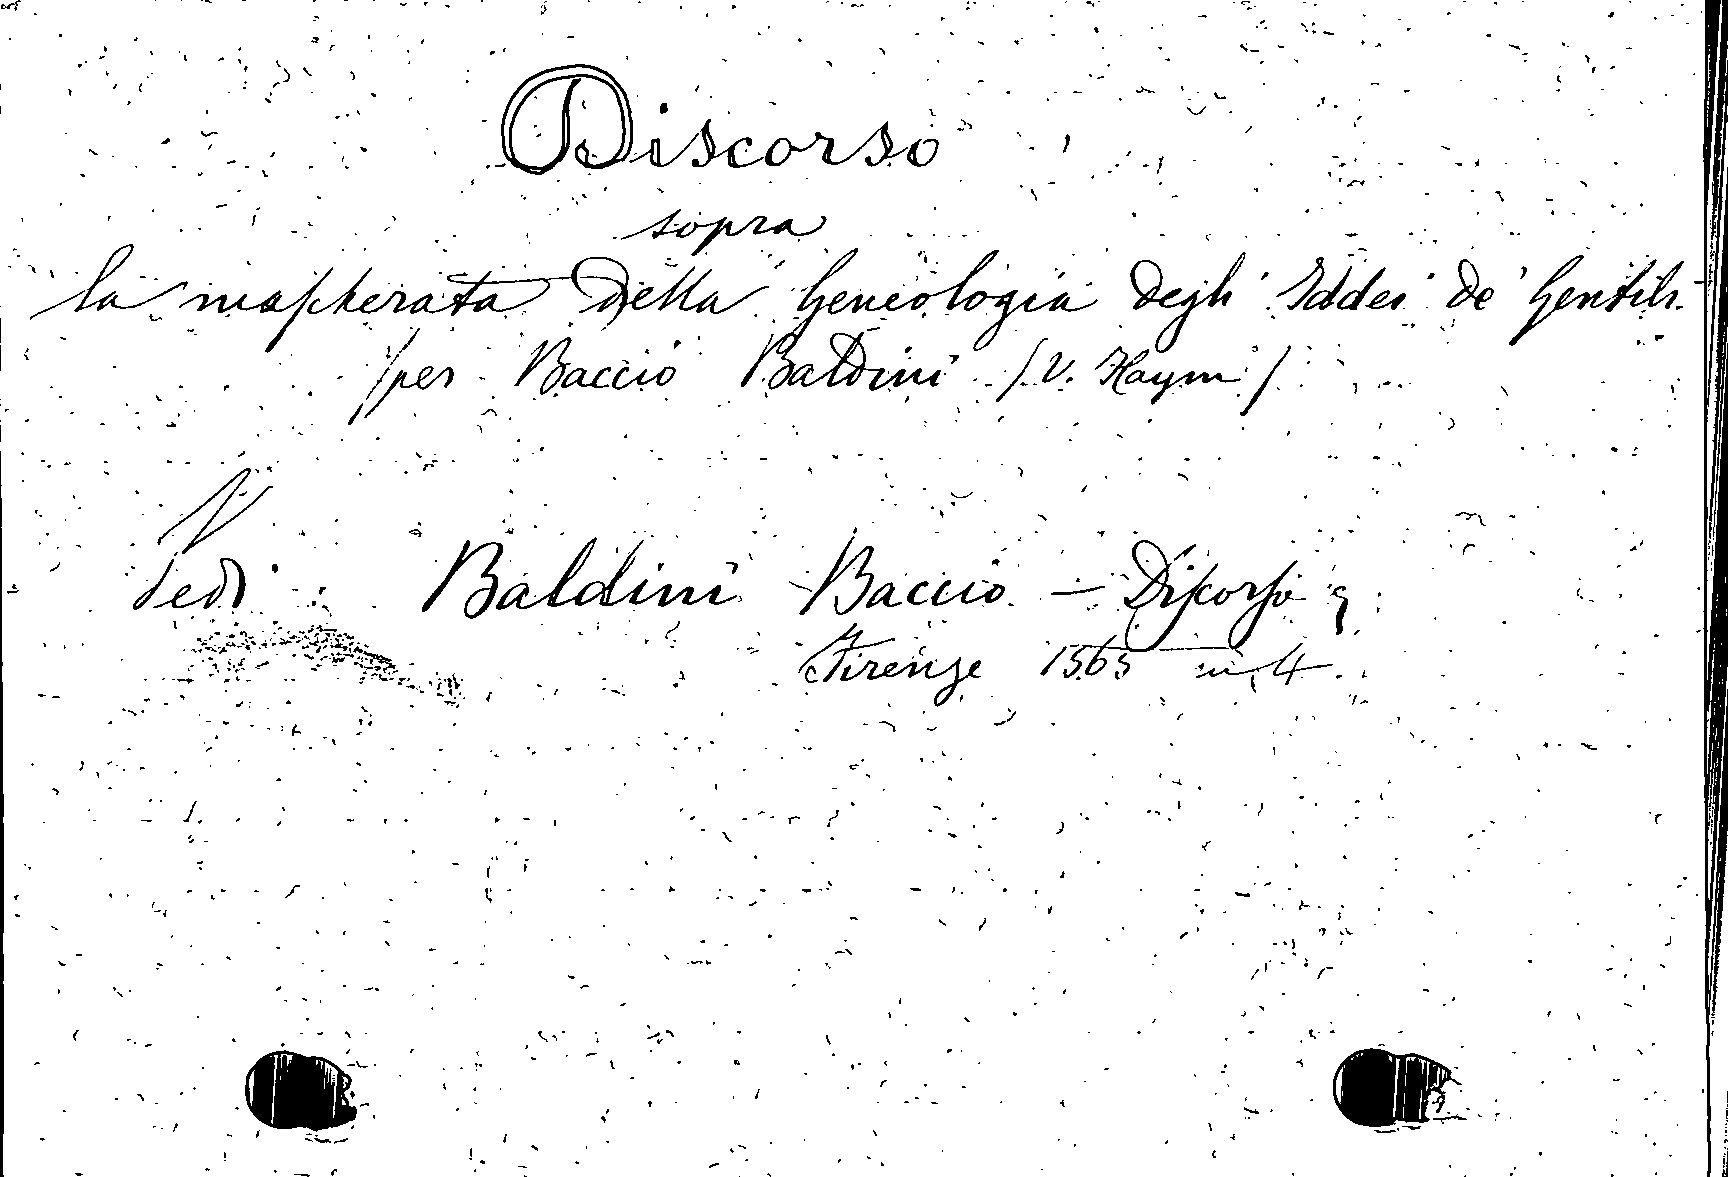 Discorso
sopra
la mascherata della Geneologia degli Iddei de' Gentili
/per Baccio Baldini /V. Haym/
Vedi Baldini Baccio - Discorso
Firenze 1565 in 4.